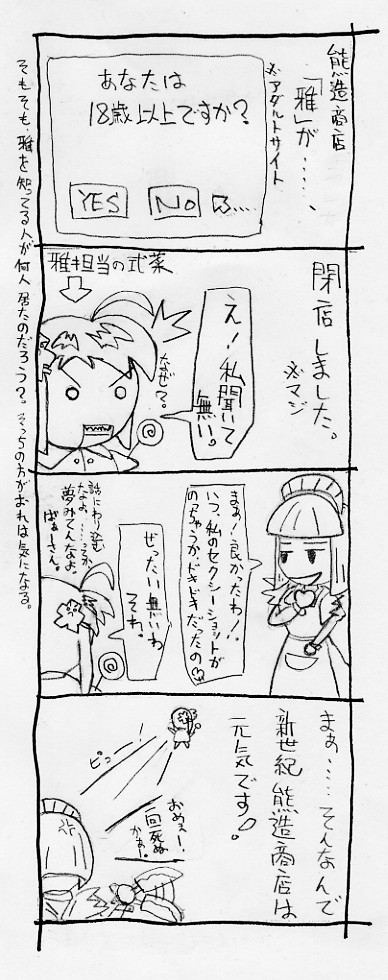 熊造商店
「雅」が……、
※アダルトサイト
あなたは
18歳以上ですか?
YES
NO
閉店しました。
※マジ
え!私聞いて
無い。
なぜ?。
雅担当の式薬
まぁ!良かったわ!。
いつ、私のセクシーショットが
のっちゃうかドキドキだったの♡
ぜったい無いわ
それ。
話にわり込む
なよ、……つか
夢みてんなよ。
ばぁーさん。
まぁ……そんなんで
新世紀熊造商店は
元気です♪。
ピュー!
おめぇー!
一回死ぬ
かぁ!。
そもそも、雅を知ってる人が何人居たのだろう?。そっちの方がおれは気になる。